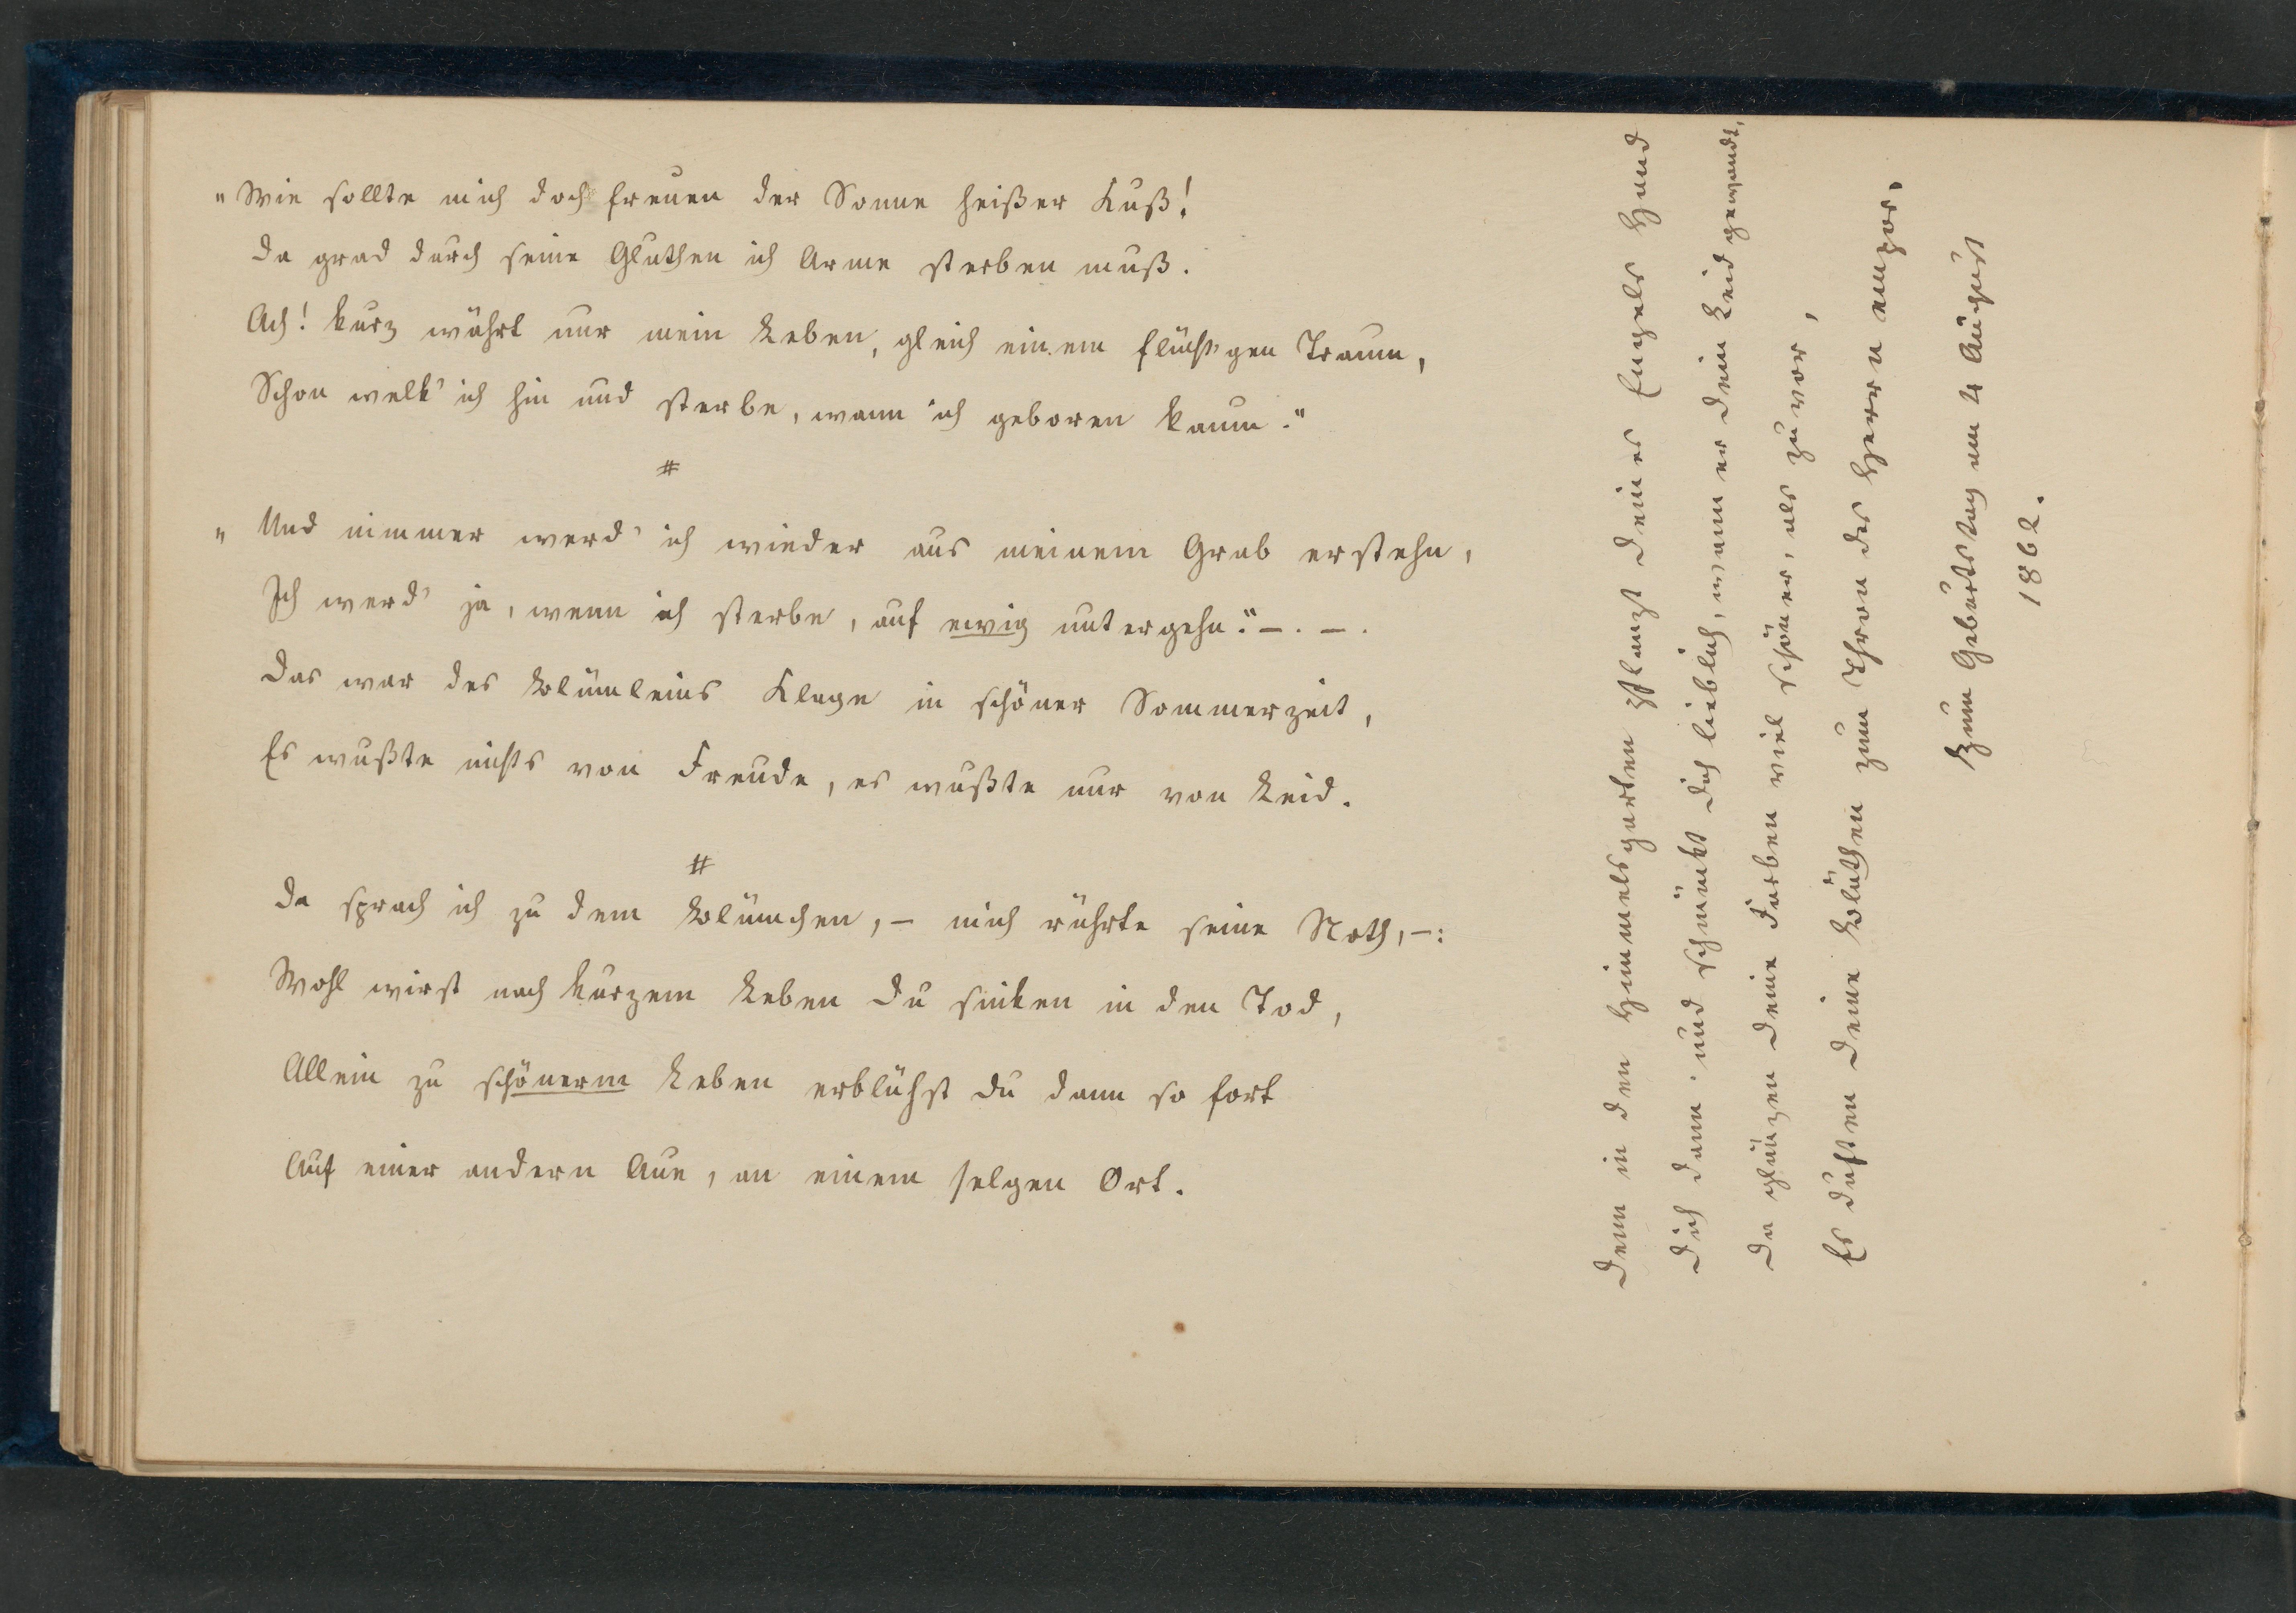 „Wie sollte mich doch freuen der Sonne heißer Kuß!
Da grad durch seine Gluthen ich Arme sterben muß.
Ach! kurz währt nur mein Leben, gleich einem flücht'gen Traum,
Schon welk' ich hin und sterbe, wann ich geboren kaum."
#
„Und nimmer werd' ich wieder aus meinem Grab erstehn,
Ich werd' ja, wenn ich sterbe, auf ewig untergehn." – . – .
Das war des Blümleins Klage in schöner Sommerzeit,
Es wußte nichts von Freude, es wußte nur von Leid.
#
Da sprach ich zu dem Blümchen, – mich rührte seine Noth, –:
Wohl wirst nach kurzem Leben Du sinken in den Tod,
Allein zu schönerm Leben erblühst Du dann so fort
Auf einer andern Aue, an einem selgen Ort.
Denn in den Himmelsgarten pflanzt Deiner Engels Hand
Dich dann und schmückt Dich lieblich, wann er Dein Leid gewandt,
Da glänzen Deine Farben viel schöner, als zuvor,
Es duften Deine Blüthen zum Thron des Herrn empor.
Zum Geburtstag am 4 August
1862.